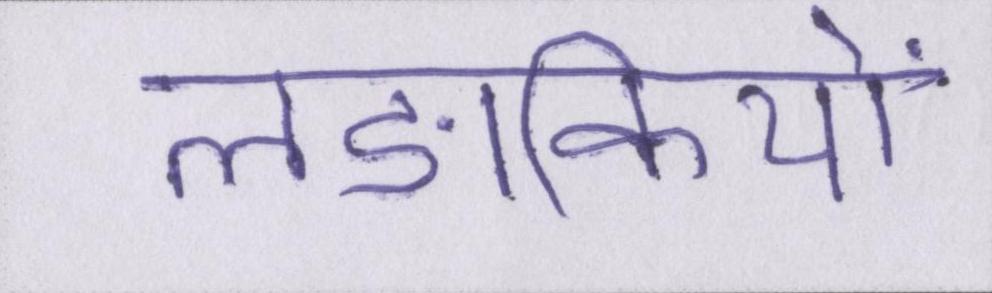 लडाकियों